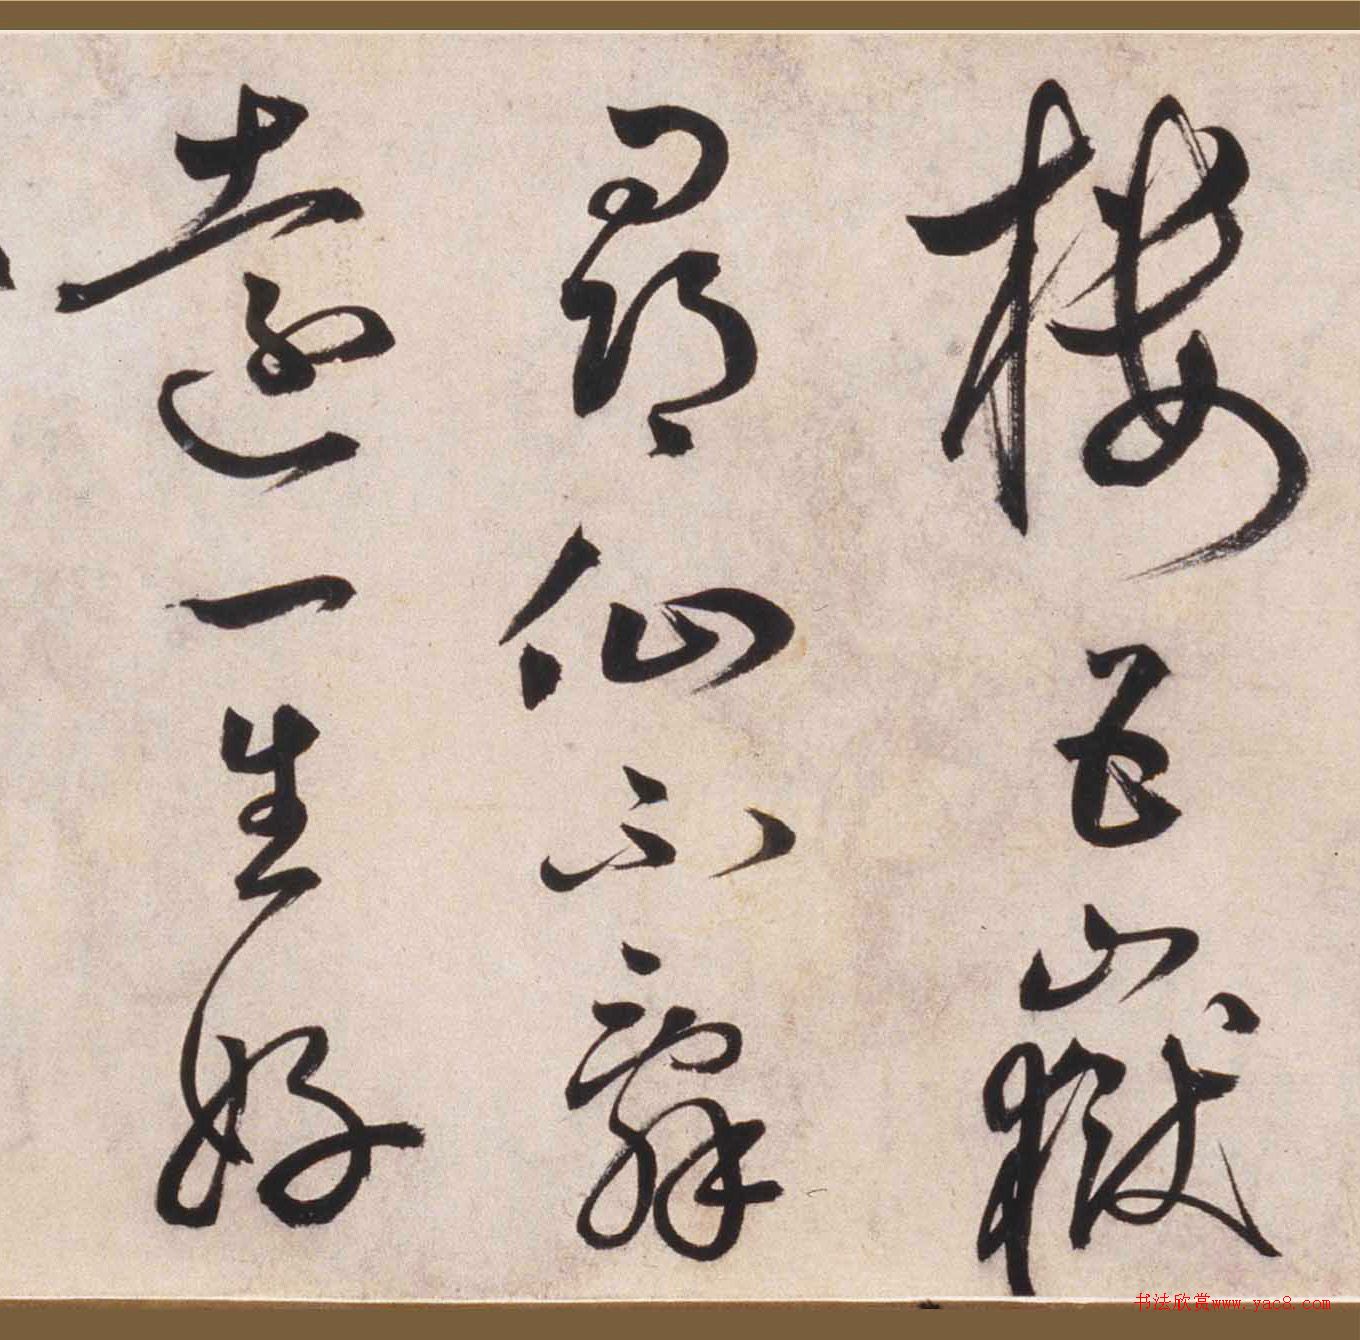 樓五嶽
尋仙不辭
遠一生好
书法欣赏www.yac8.com